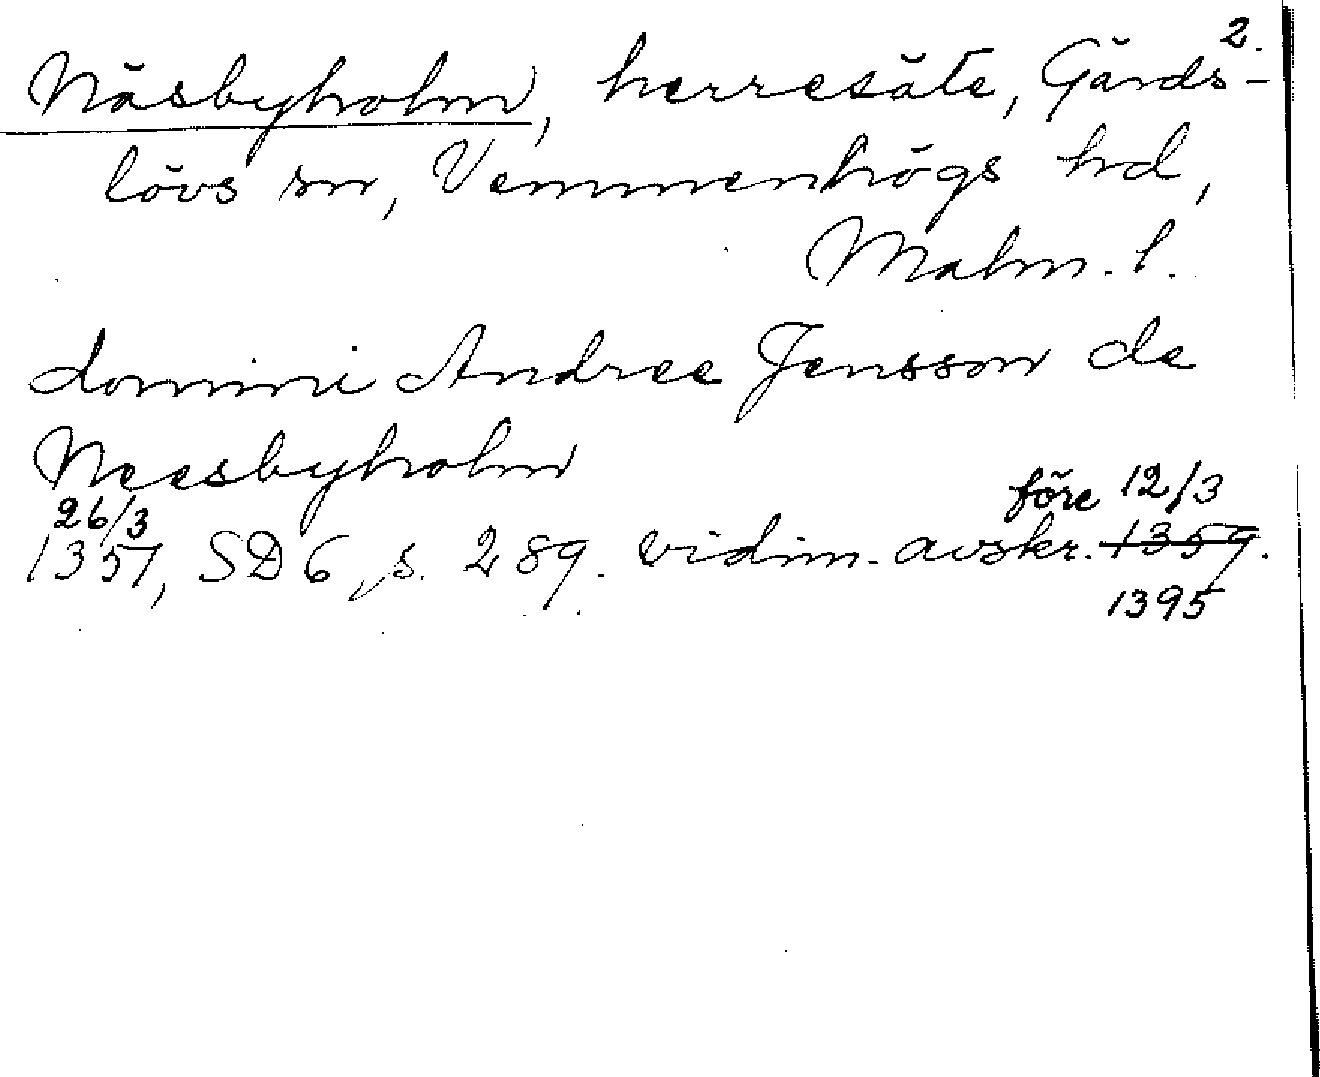 2.
Näsbyholm, herresäte, Gårds-
lövs sn, Vemmenhögs hd,
Malm. l.
domini Andree Jensson de
Neesbyholm
26/3 före 12/3
1357, SD 6, s. 289. vidim. avskr. 1359.
1395